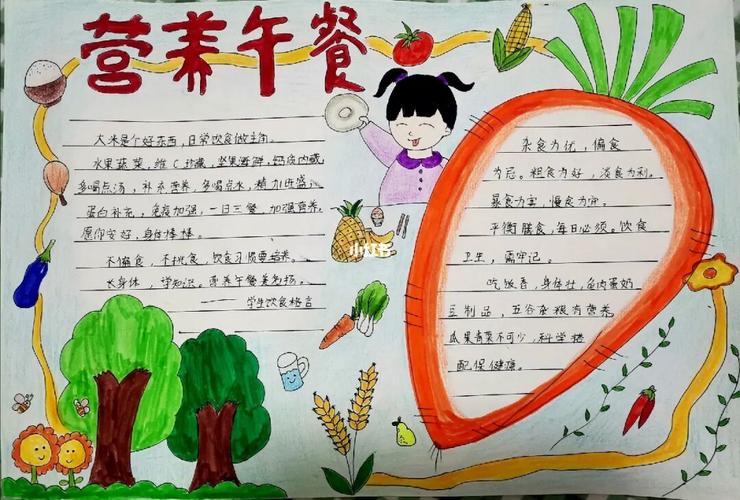 营养午餐
大米是个好东西,日常饮食做主角。
水果蔬菜,维C珍藏,坚果海鲜,钙质内藏
多喝点汤,补充营养,多喝点水,精力旺盛。
蛋白补充,免疫加强,一日三餐,加强营养。
愿你安好,身体棒棒。
不偏食,不挑食,饮食习惯要培养。
长身体,学知识。营养午餐美名扬。
——学生饮食格言
小红书
杂食为优,偏食
为忌。粗食为好,淡食为利。
暴食为害,慢食为宜。
平衡膳食,每日必须。饮食
卫生,需牢记。
吃饭香,身体壮,鱼肉蛋奶
豆制品,五谷杂粮有营养。
瓜果青菜不可少,科学搭
配保健康。